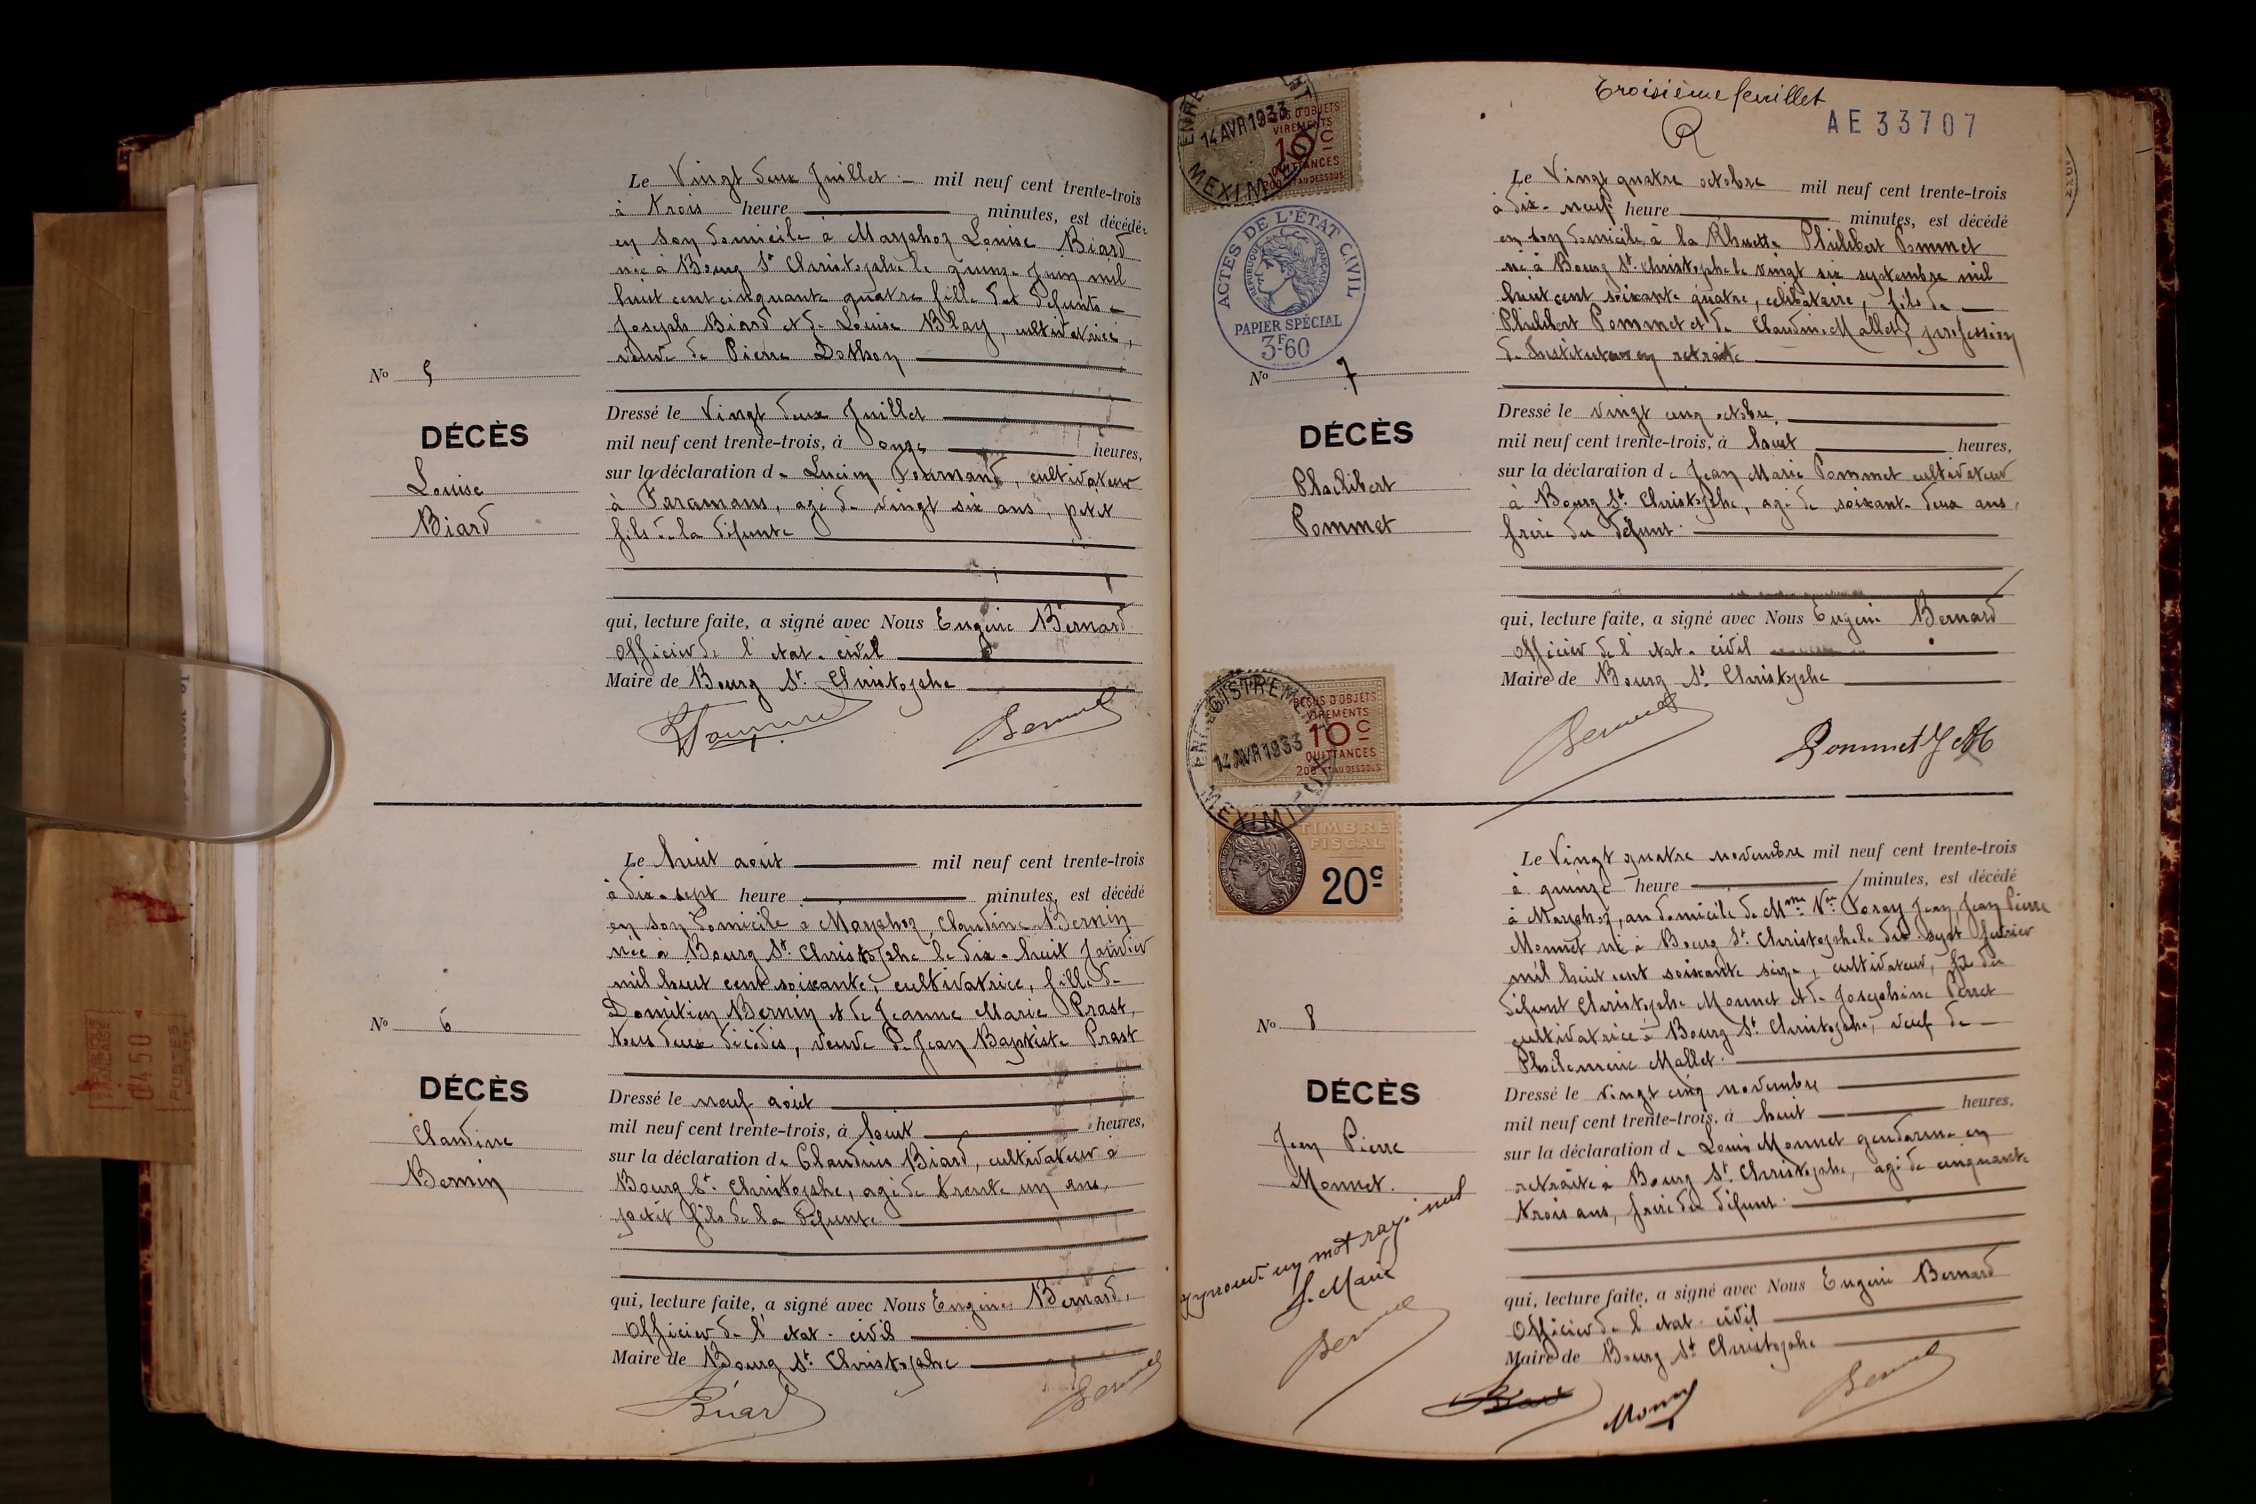 Le Vingt deux Juillet mil neuf cent trente-trois
à trois heure minutes, est décédée
en son domicile à Marphoz Louise Biard
née à Bourg St Christophe le quinze Juin mil
huit cent cinquante quatre fille des défunts
Joseph Biard et de Louise Blay, cultivatrice,
veuve de Pierre Dothon
No 5
DÉCÈS
Louise
Biard
Dressé le Vingt deux Juillet
mil neuf cent trente-trois, à onze heures,
sur la déclaration de Lucien Fournand, cultivateur
à Faramans, agé de vingt six ans, petit
fils de la défunte
qui, lecture faite, a signé avec Nous Eugène Bernard
Officier de l'état-civil
Maire de Bourg St. Christophe
Bernard
Le huit août mil neuf cent trente-trois
à dix-sept heure minutes, est décédé
en son domicile à Marphoz, Claudine Bernin
née à Bourg St. Christophe le dix-huit Janvier
mil huit cent soixante, cultivatrice, fille de
Domitien Bernin et de Jeanne Marie Prast,
tous deux décédés, veuve de Jean Baptiste Prast
No 6
DÉCÈS
Claudine
Bernin
Dressé le neuf août
mil neuf cent trente-trois, à huit heures,
sur la déclaration de Claudius Biard, cultivateur à
Bourg St. Christophe, agé de trente un ans,
petit fils de la défunte
qui, lecture faite, a signé avec Nous Eugène Bernard,
Officier de l'état-civil
Maire de Bourg St. Christophe
Biard
Bernard
Troisième feuillet
R
AE 33707
14 AVR 1933
VIREMENTS
10c
QUITTANCES
MEXIMIEUX
ACTES DE L'ÉTAT CIVIL
RÉPUBLIQUE FRANÇAISE
PAPIER SPÉCIAL
3F60
Le Vingt quatre octobre mil neuf cent trente-trois
à dix-neuf heure minutes, est décédé
en son domicile à la Rhuette Philibert Pommet
né à Bourg St. Christophe le vingt six septembre mil
huit cent soixante quatre, célibataire, fils de
Philibert Pommet et de Claudine Mallet, profession
d'Instituteur en retraite
No 7
DÉCÈS
Philibert
Pommet
Dressé le vingt cinq octobre
mil neuf cent trente-trois, à huit heures,
sur la déclaration de Jean Marie Pommet cultivateur
à Bourg St. Christophe, agé de soixante deux ans,
frère du défunt.
qui, lecture faite, a signé avec Nous Eugène Bernard
Officier de l'état-civil
Maire de Bourg St. Christophe
Bernard
Pommet
ENREGISTREMENT
14 AVR 1933
MEXIMIEUX
REÇUS D'OBJETS
VIREMENTS
10c
QUITTANCES
200 F ET AU DESSOUS
TIMBRE
FISCAL
20c
Le Vingt quatre novembre mil neuf cent trente-trois
à quinze heure minutes, est décédé
à Marphoz, au domicile de Mme Vve Foray Jean, Jean Pierre
Monnet né à Bourg St. Christophe le dix sept février
mil huit cent soixante seize, cultivateur, fils du
défunt Christophe Monnet et de Josephine Perret
cultivatrice à Bourg St. Christophe, veuf de
Philomène Mallet.
No 8
DÉCÈS
Jean Pierre
Monnet.
Dressé le vingt cinq novembre
mil neuf cent trente-trois, à huit heures,
sur la déclaration de Louis Monnet gendarme en
retraite à Bourg St. Christophe, agé de cinquante
trois ans, frère du défunt.
Approuvé un mot rayé nul
L. Maire
Bernard
qui, lecture faite, a signé avec Nous Eugène Bernard
Officier de l'état-civil
Maire de Bourg St. Christophe
Biard
Monnet
Bernard